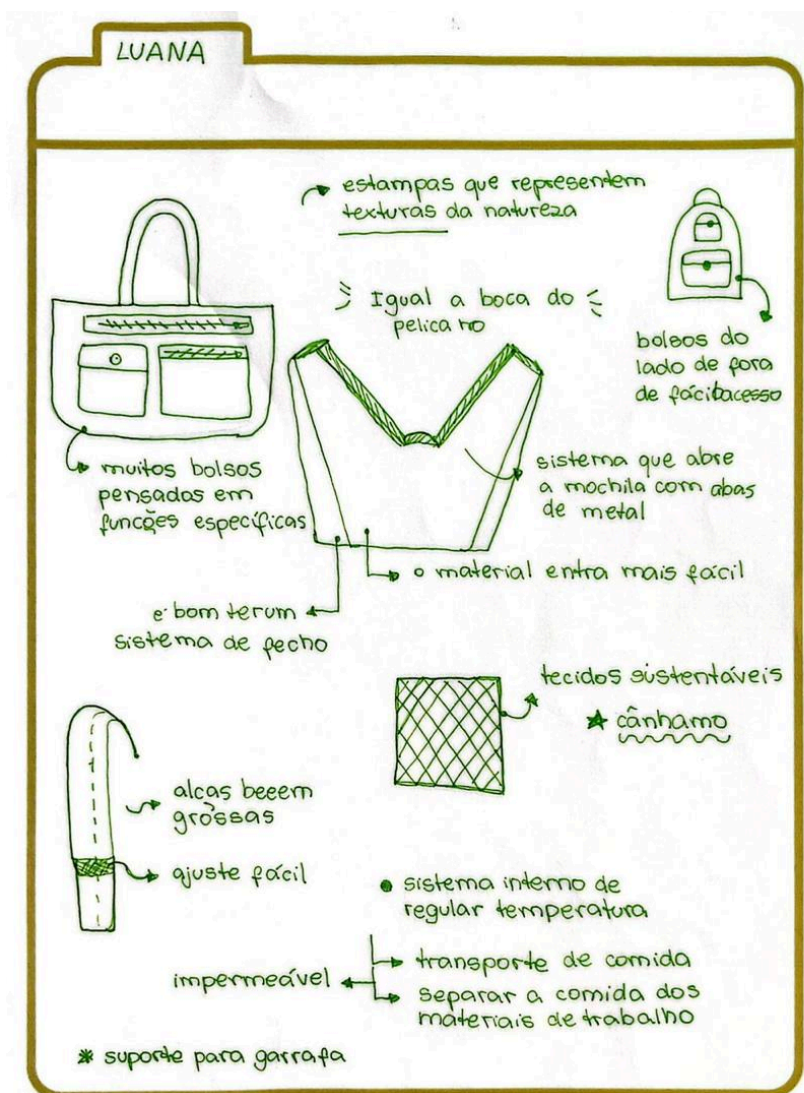 LUANA
estampas que representem
texturas da natureza
Igual a boca do
pelicano
bolsos do
lado de fora
de fácil acesso
muitos bolsos
pensados em
funcões específicas
sistema que abre
a mochila com abas
de metal
o material entra mais fácil
e' bom ter um
sistema de fecho
tecidos sustentáveis
★ cânhamo
alcas beeem
grossas
ajuste fácil
• sistema interno de
regular temperatura
transporte de comida
impermeável
separar a comida dos
materiais de trabalho
* suporte para garrafa